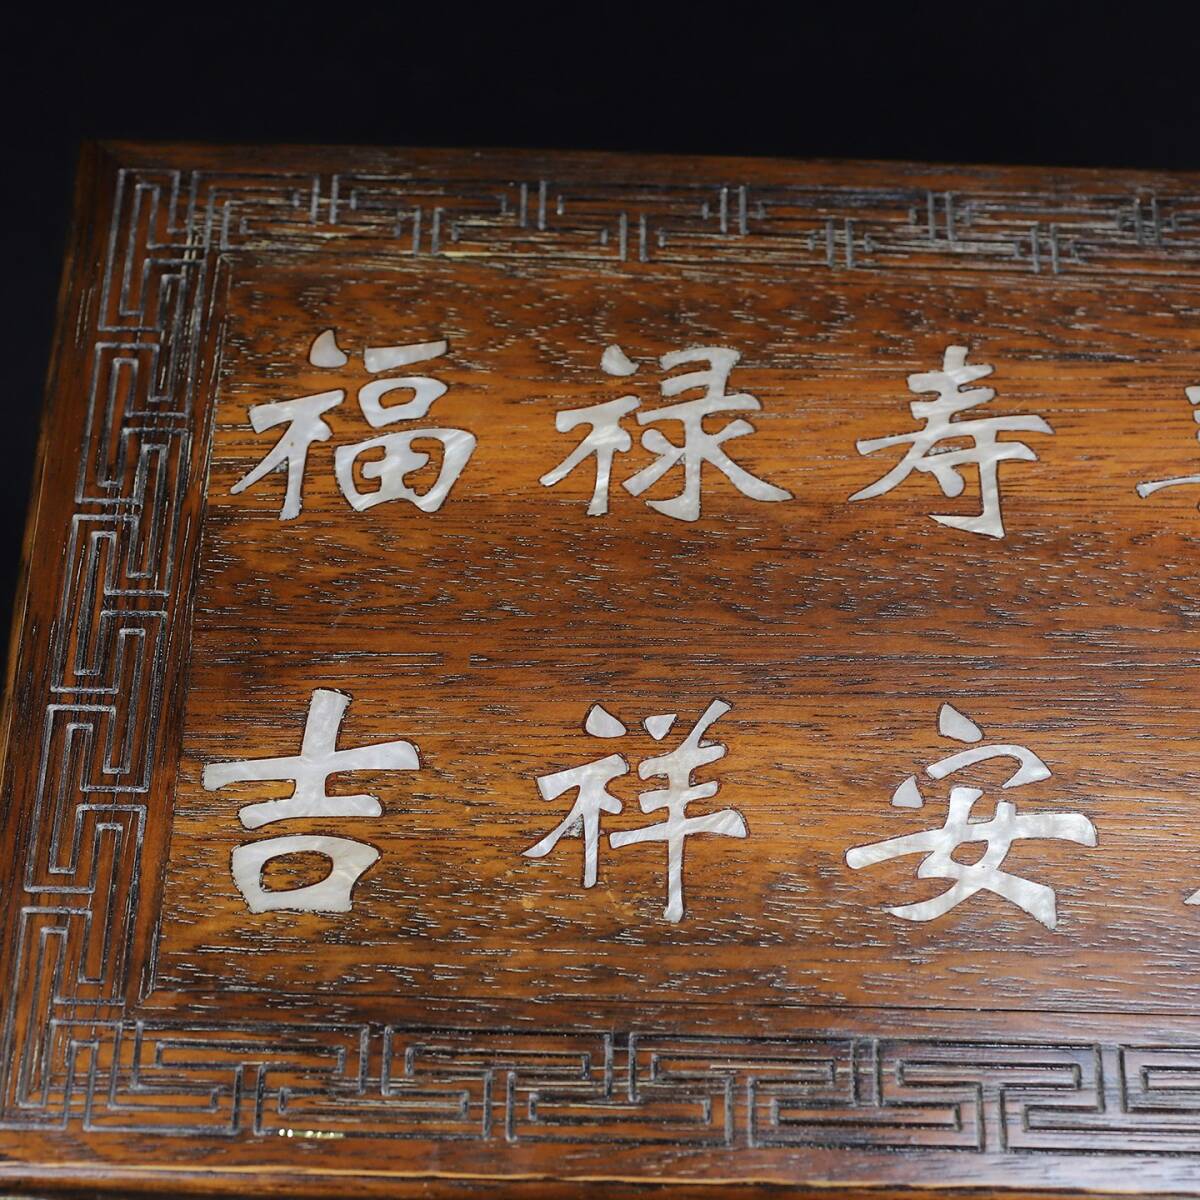 福禄寿
吉祥安